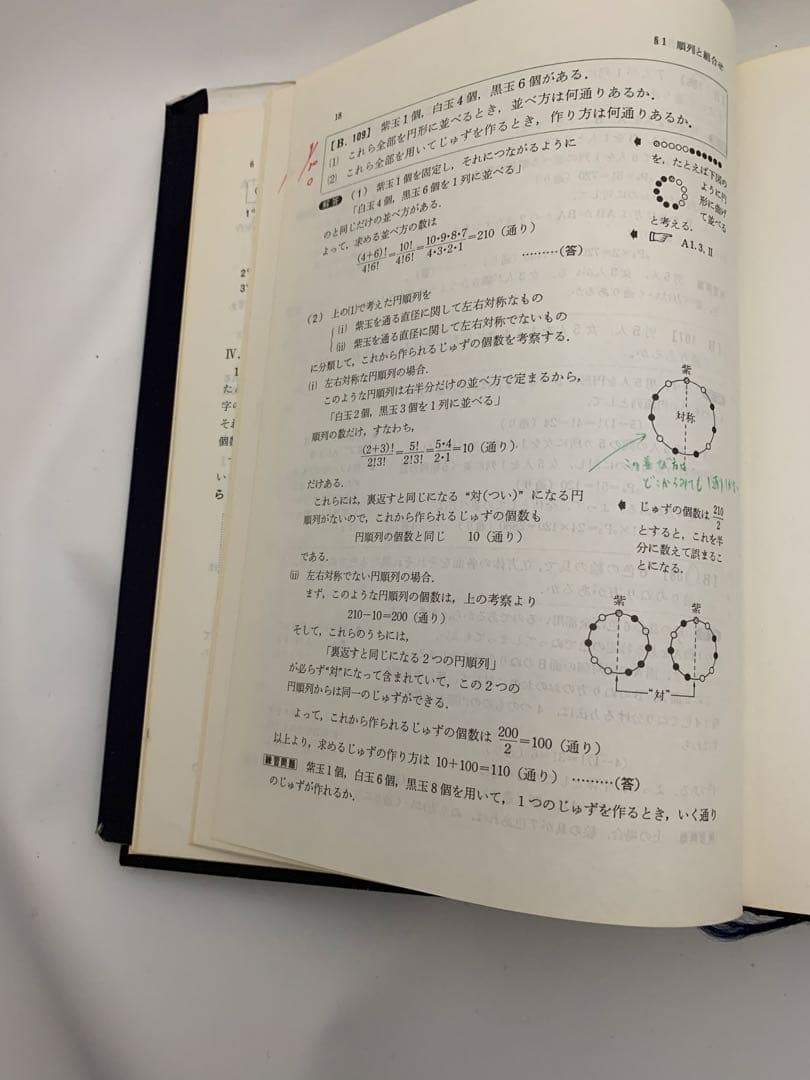 §1 順列と組合せ
18
[B. 109] 紫玉1個，白玉4個，黒玉6個がある．
(1) これら全部を円形に並べるとき，並べ方は何通りあるか．
(2) これら全部を用いてじゅずを作るとき，作り方は何通りあるか．
解答 (1) 紫玉1個を固定し，それにつながるように
「白玉4個，黒玉6個を1列に並べる」
のと同じだけの並べ方がある．
よって，求める並べ方の数は
(4+6)!/4!6!=10!/4!6!=10・9・8・7/4・3・2・1=210（通り）
………(答)
を，たとえば下図の
ように円
形に曲げ
て並べる
と考える．
A1.3, II
(2) 上の(1)で考えた円順列を
(i) 紫玉を通る直径に関して左右対称なもの
(ii) 紫玉を通る直径に関して左右対称でないもの
に分類して，これから作られるじゅずの個数を考察する．
(i) 左右対称な円順列の場合．
このような円順列は右半分だけの並べ方で定まるから，
「白玉2個，黒玉3個を1列に並べる」
順列の数だけ，すなわち，
(2+3)!/2!3!=5!/2!3!=5・4/2・1=10（通り）
だけある．
これらには，裏返すと同じになる“対(つい)”になる円
順列がないので，これから作られるじゅずの個数も
円順列の個数と同じ 10（通り）
である．
紫
対称
この並な方は
どこからみても1通り
じゅずの個数は210/2
とすると，これを半
分に数えて誤まるこ
とになる．
(ii) 左右対称でない円順列の場合．
まず，このような円順列の個数は，上の考察より
210−10=200（通り）
そして，これらのうちには，
「裏返すと同じになる2つの円順列」
が必らず“対”になって含まれていて，この2つの
円順列からは同一のじゅずができる．
紫 紫
“対”
よって，これから作られるじゅずの個数は 200/2=100（通り）
以上より，求めるじゅずの作り方は 10+100=110（通り）………(答)
練習問題 紫玉1個，白玉6個，黒玉8個を用いて，1つのじゅずを作るとき，いく通り
のじゅずが作れるか．
1°
2°
3°
IV.
1
たと
字の
それ
個数
ら